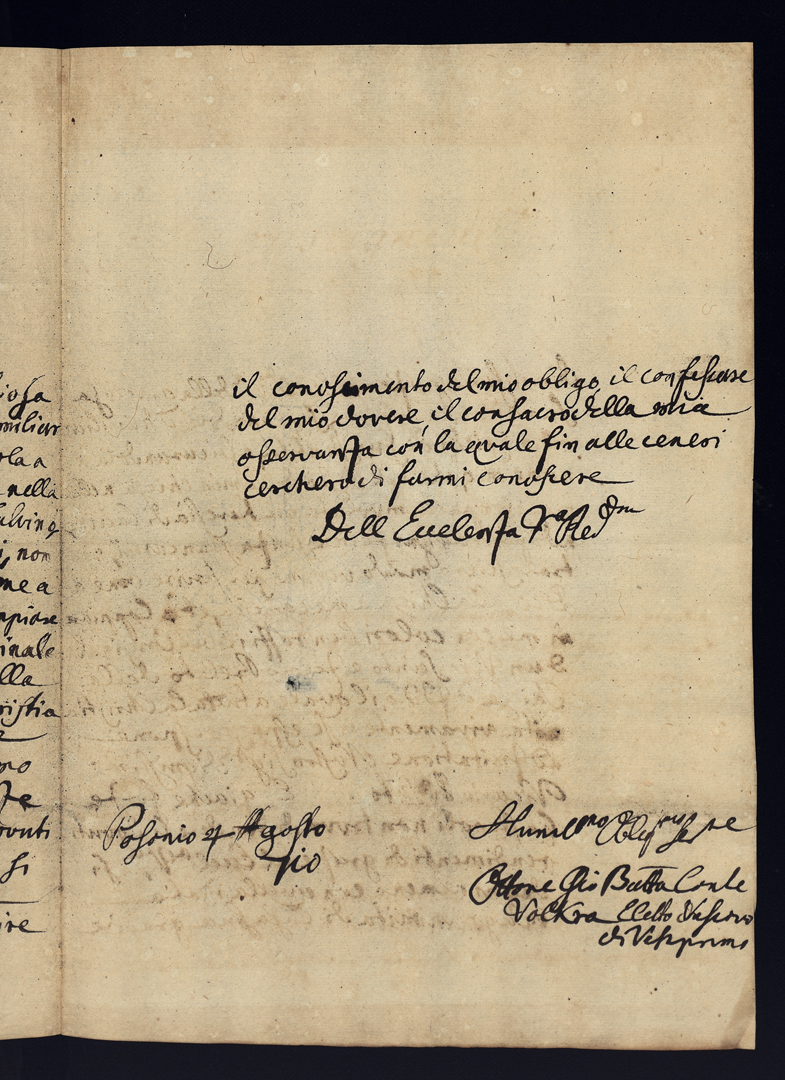 iosa
miliar
ola a
nella
i, non
me a
mpiare
inale
lla
ristia
mo
ronti
si
ire
il conoscimento del mio obligo, il confessare
del mio dovere, il consacro della mia
osservanza con la quale fin alle ceneri
cercherò di farmi conoscere
Dell Eccelenza Vra Redma
Posonio 4 Agosto
710
Humilmo Obligmo Serre
Ottone Gio Batta Conte
Volkra Eletto Vescovo
di Vesprimo